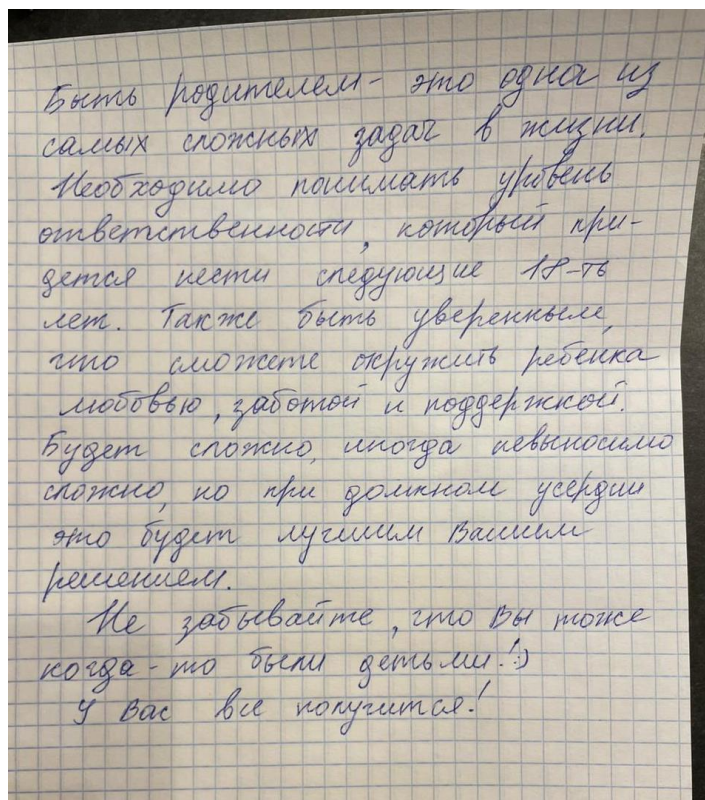 Быть родителем - это одна из
самых сложных задач в жизни.
Необходимо понимать уровень
ответственности, который при-
дется нести следующие 18-ть
лет. Также быть уверенным,
что сможете окружить ребенка
любовью, заботой и поддержкой.
Будет сложно, иногда невыносимо
сложно, но при должном усердии
это будет лучшим Вашим
решением.
Не забывайте, что Вы тоже
когда-то были детьми!:)
У Вас все получится!